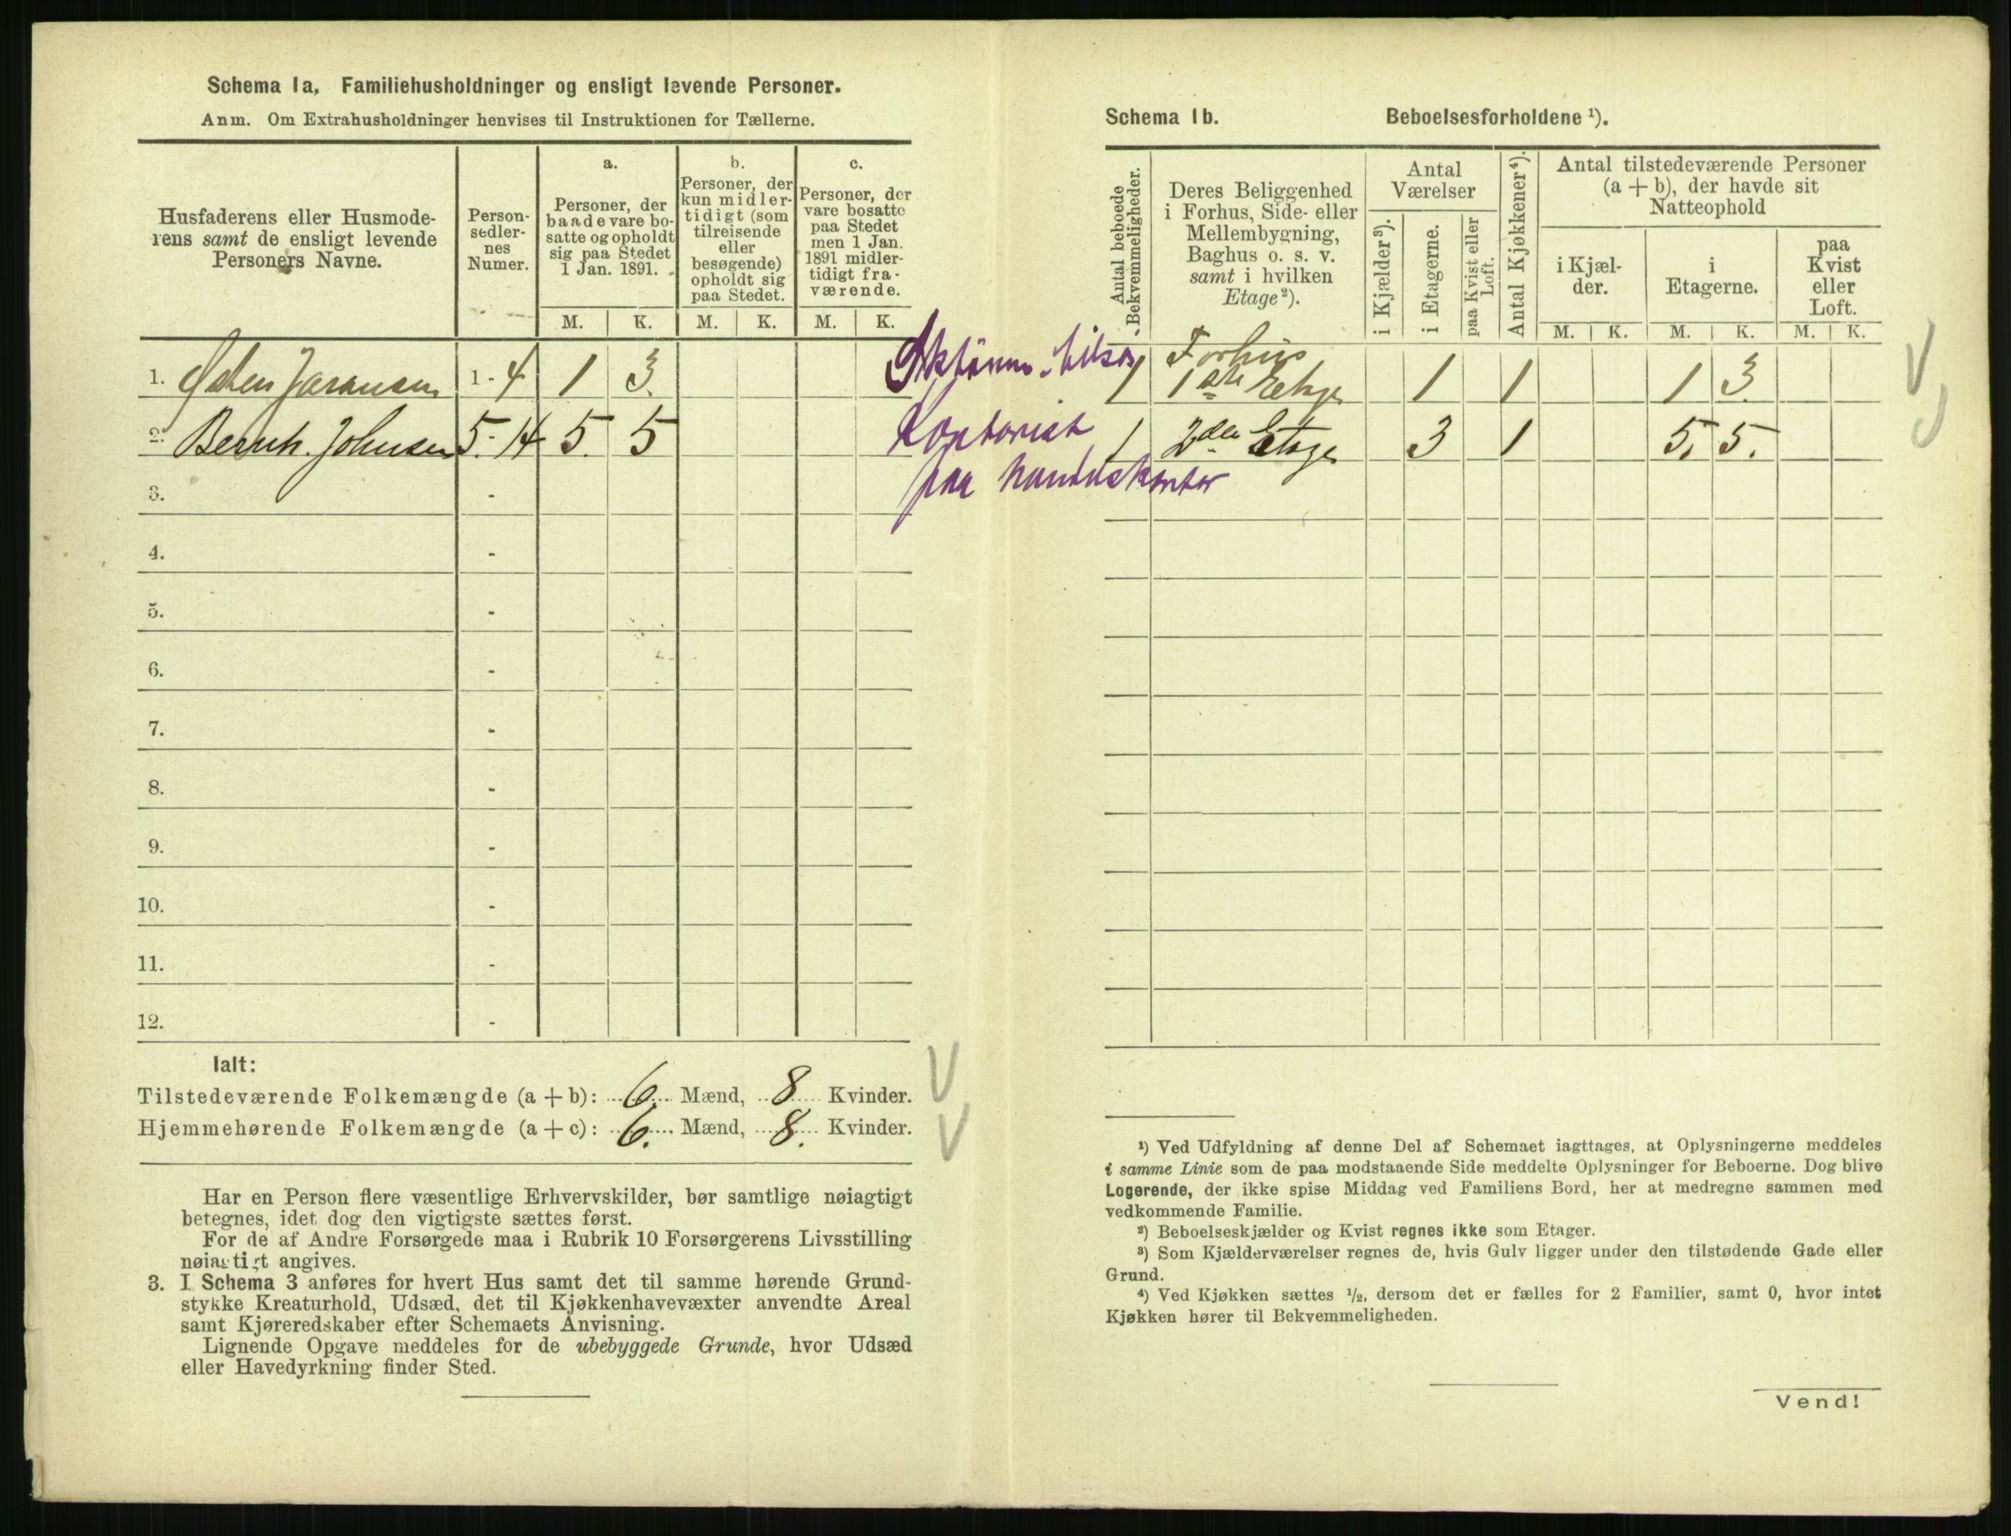 Schema 1a. Familiehusholdninger og ensligt levende Personer.
Anm. Om Extrahusholdninger henvises til Instruktionen for Tællerne.
Husfaderens eller Husmode-
rens samt de ensligt levende
Personers Navne.
Person-
sedler-
nes
Numer.
a.
Personer, der
baade vare bo-
satte og opholdt
sig paa Stedet
1 Jan. 1891.
b.
Personer, der
kun midler-
tidigt (som
tilreisende
eller
besøgende)
opholdt sig
paa Stedet.
c.
Personer, der
vare bosatte
paa Stedet
men 1 Jan.
1891 midler-
tidigt fra-
værende.
M. K. M. K. M. K.
1. Østen Joransen 1 - 4 1 3.
2. Bernh. Johnsen 5 - 14 5. 5
3. -
4. -
5. -
6. -
7. -
8. -
9. -
10. -
11. -
12. -
Ialt:
Tilstedeværende Folkemængde (a + b): 6. Mænd, 8 Kvinder.
Hjemmehørende Folkemængde (a + c): 6. Mænd, 8. Kvinder.
Har en Person flere væsentlige Erhvervskilder, bør samtlige nøiagtigt
betegnes, idet dog den vigtigste sættes først.
For de af Andre Forsørgede maa i Rubrik 10 Forsørgerens Livsstilling
nøiagtigt angives.
3. I Schema 3 anføres for hvert Hus samt det til samme hørende Grund-
stykke Kreaturhold, Udsæd, det til Kjøkkenhavevæxter anvendte Areal
samt Kjøreredskaber efter Schemaets Anvisning.
Lignende Opgave meddeles for de ubebyggede Grunde, hvor Udsæd
eller Havedyrkning finder Sted.
Schema 1b. Beboelsesforholdene ¹).
Antal beboede
Bekvemmeligheder.
Deres Beliggenhed
i Forhus, Side- eller
Mellembygning,
Baghus o. s. v.
samt i hvilken
Etage ²).
Antal
Værelser
i Kjælder ³).
i Etagerne.
paa Kvist eller
Loft.
Antal Kjøkkener ⁴).
Antal tilstedeværende Personer
(a + b), der havde sit
Natteophold
i Kjæl-
der.
i
Etagerne.
paa
Kvist
eller
Loft.
M. K. M. K. M. K.
Forhus
1 1ste Etage 1 1 1 3.
Kontorist
1 2den Etage 3 1 5. 5.
paa
¹) Ved Udfyldning af denne Del af Schemaet iagttages, at Oplysningerne meddeles
i samme Linie som de paa modstaaende Side meddelte Oplysninger for Beboerne. Dog blive
Logerende, der ikke spise Middag ved Familiens Bord, her at medregne sammen med
vedkommende Familie.
²) Beboelseskjælder og Kvist regnes ikke som Etager.
³) Som Kjælderværelser regnes de, hvis Gulv ligger under den tilstødende Gade eller
Grund.
⁴) Ved Kjøkken sættes ½, dersom det er fælles for 2 Familier, samt 0, hvor intet
Kjøkken hører til Bekvemmeligheden.
Vend!